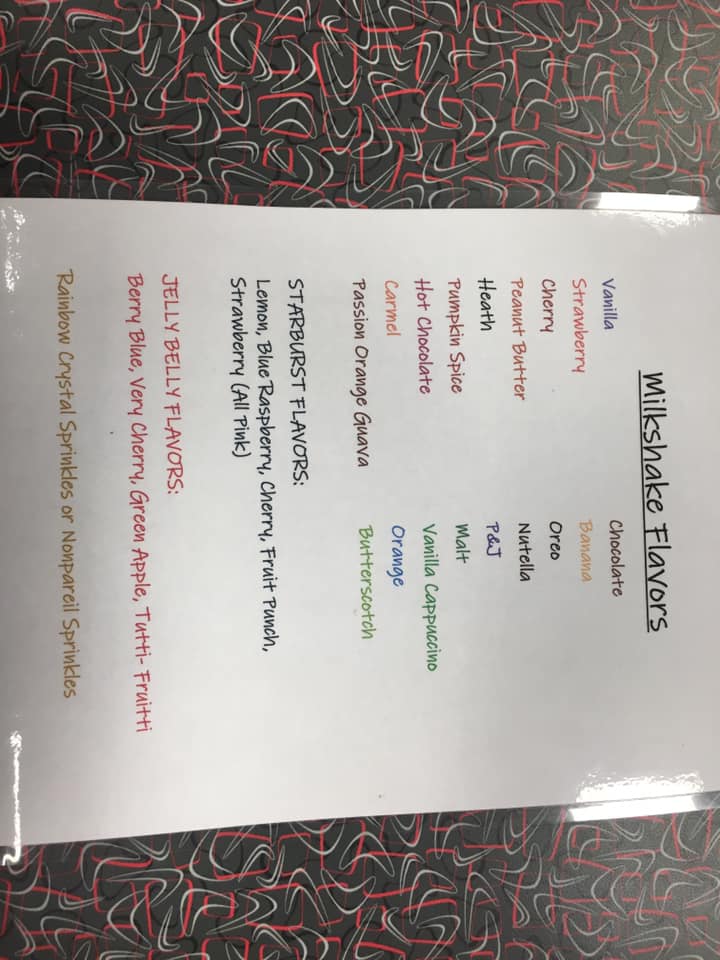 Milkshake Flavors
Vanilla Chocolate
Strawberry Banana
Cherry Oreo
Peanut Butter Nutella
Heath P&J
Pumpkin Spice Malt
Hot Chocolate Vanilla Cappuccino
Carmel Orange
Passion Orange Guava Butterscotch
STARBURST FLAVORS:
Lemon, Blue Raspberry, Cherry, Fruit Punch,
Strawberry (All Pink)
JELLY BELLY FLAVORS:
Berry Blue, Very Cherry, Green Apple, Tutti- Fruitti
Rainbow Crystal Sprinkles or Nonpareil Sprinkles